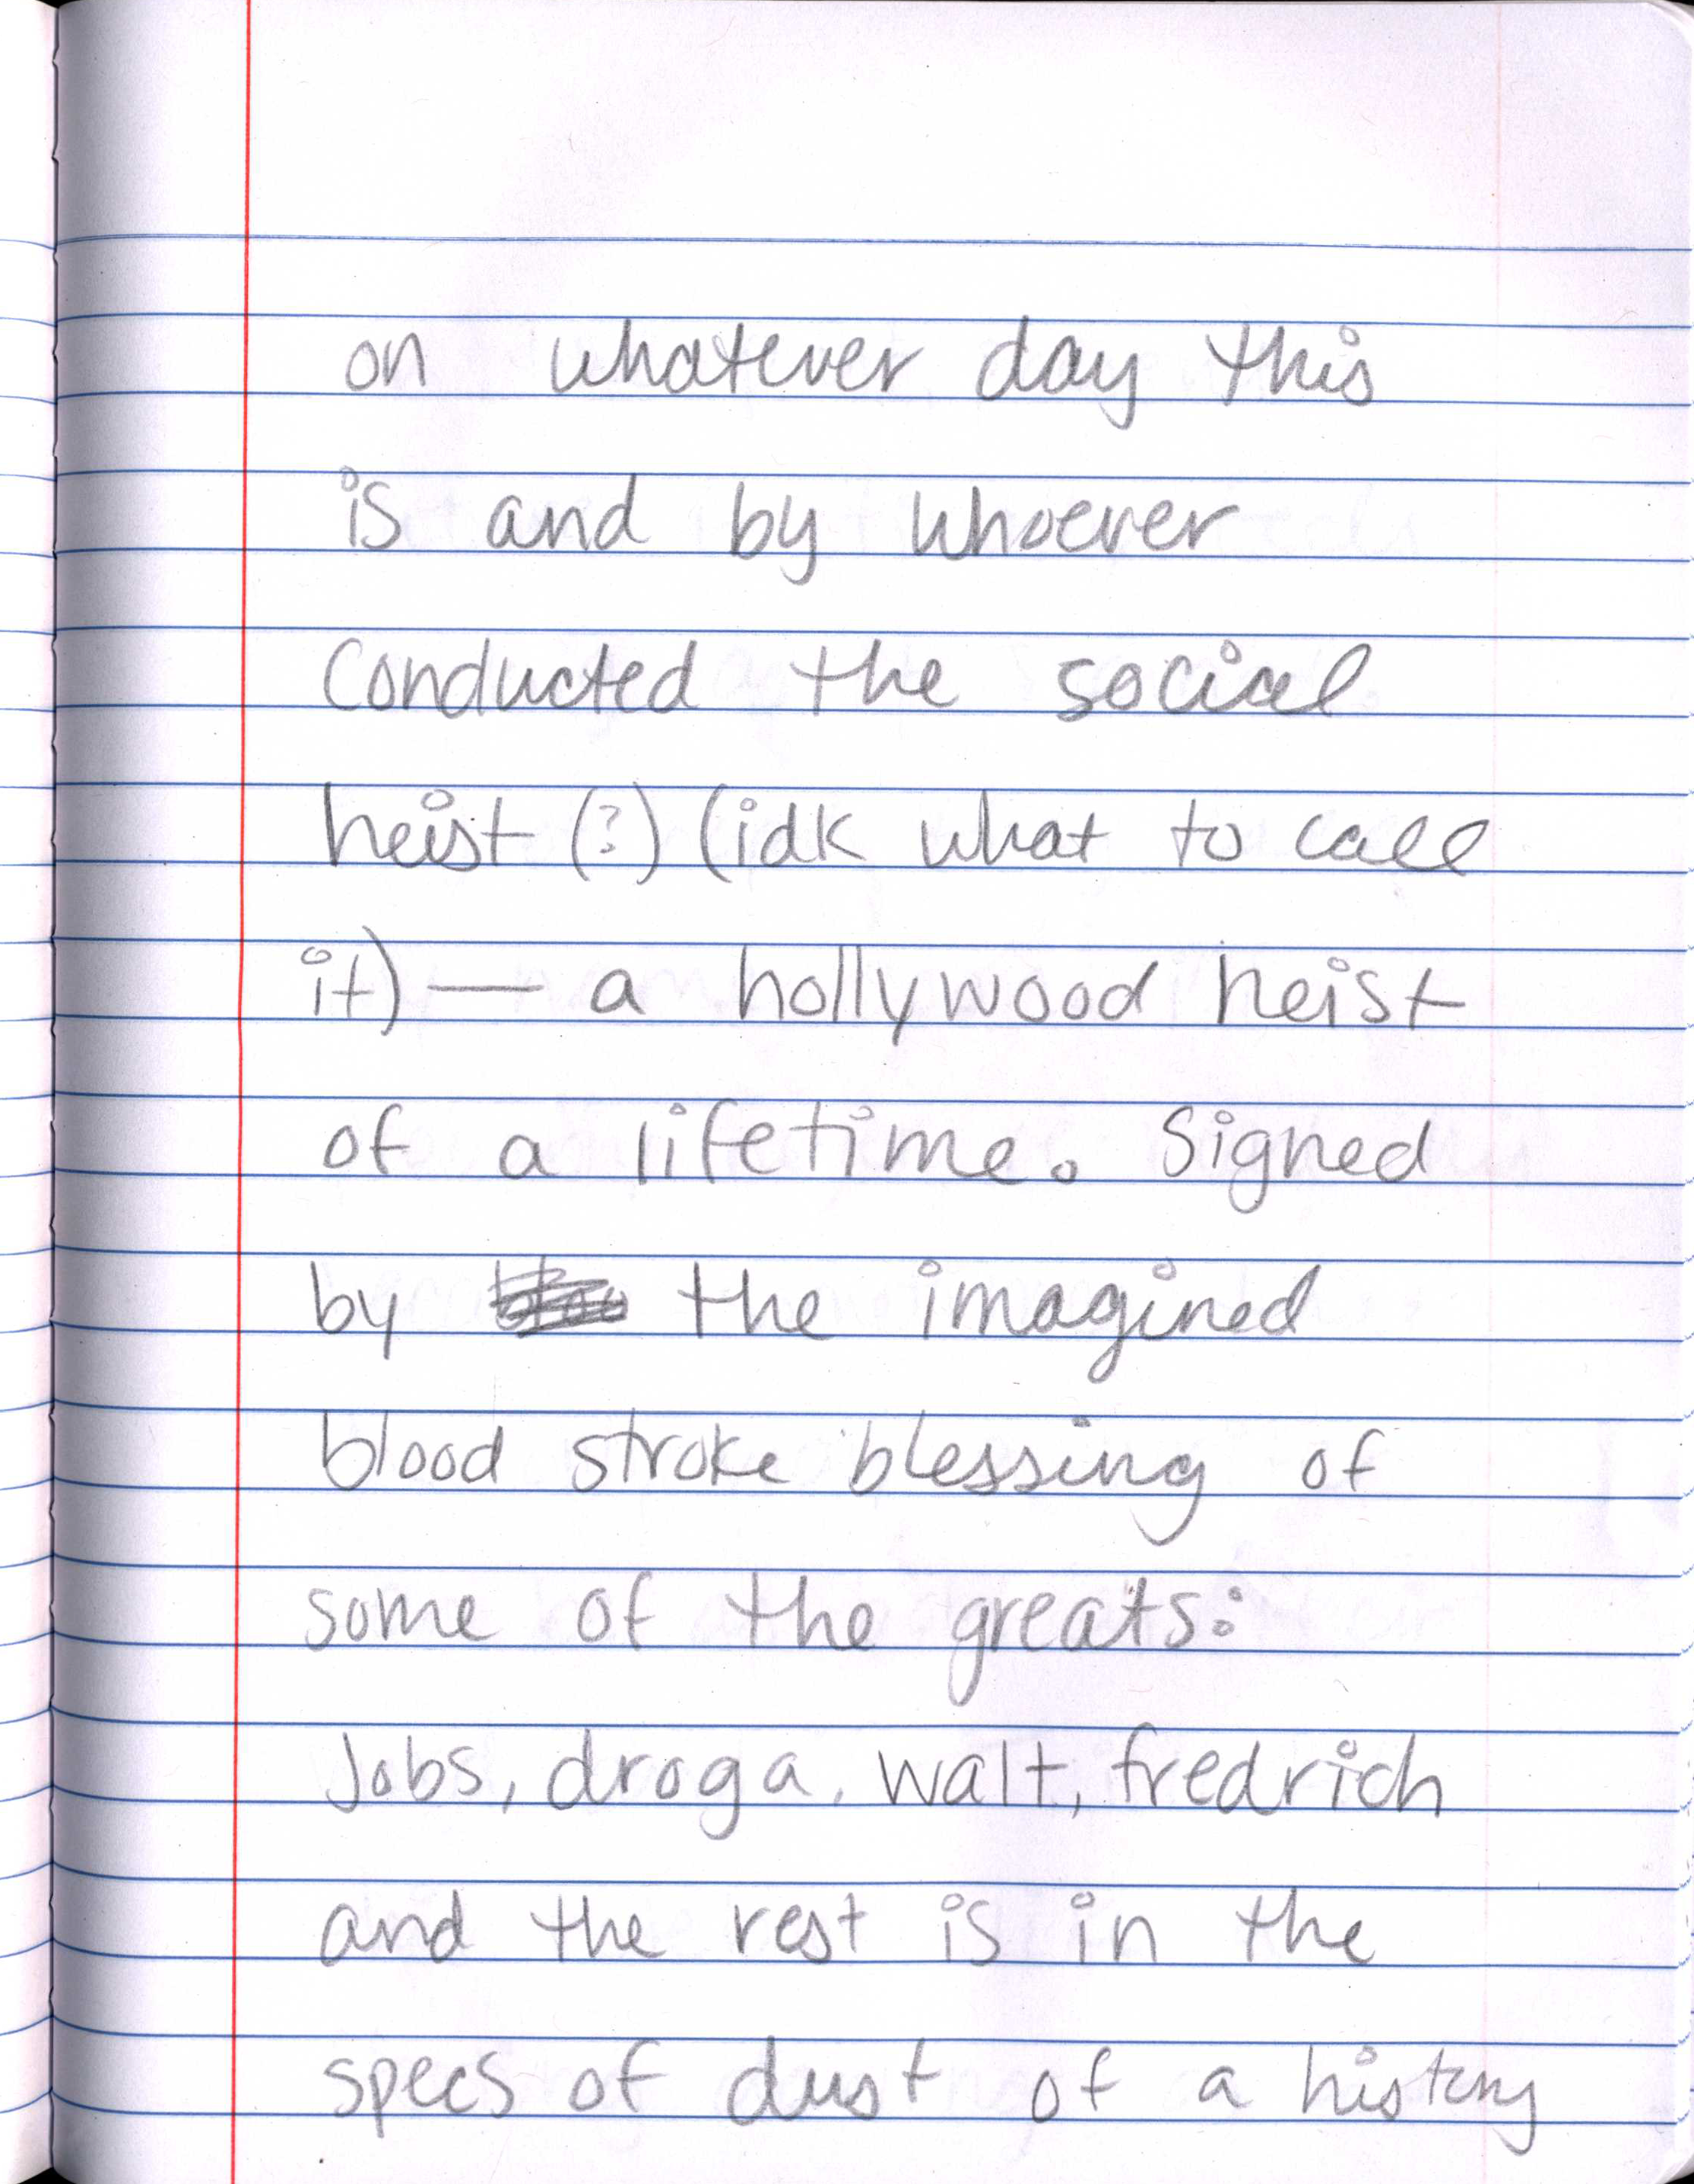 on whatever day this
is and by whoever
conducted the social
heist (?) (idk what to call
it) — a hollywood heist
of a lifetime. Signed
by the imagined
blood stroke blessing of
some of the greats:
Jobs, droga, walt, fredrich
and the rest is in the
specs of dust of a history